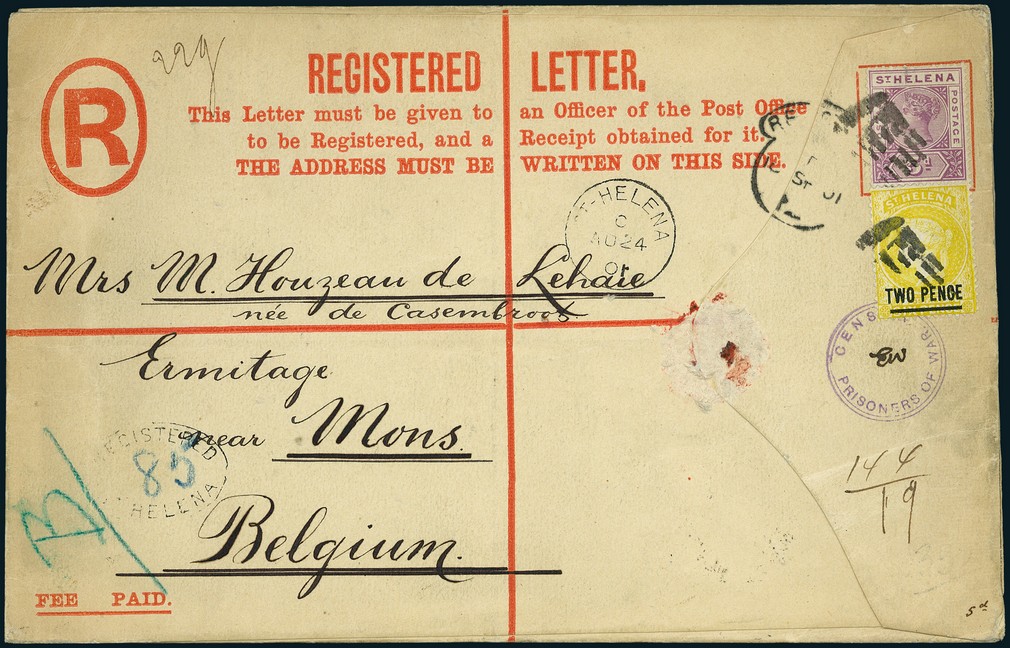 229
R
REGISTERED LETTER,
This Letter must be given to an Officer of the Post Office
to be Registered, and a Receipt obtained for it.
THE ADDRESS MUST BE WRITTEN ON THIS SIDE.
ST HELENA
POSTAGE
ST HELENA
TWO PENCE
ST-HELENA
C
AU 24
01
Mrs M. Houzeau de Lehaie
née de Casembroot
Ermitage
near Mons.
Belgium.
REGISTERED
85
HELENA
B
PRISONERS OF WAR
EW
14 4
19
FEE PAID.
5d